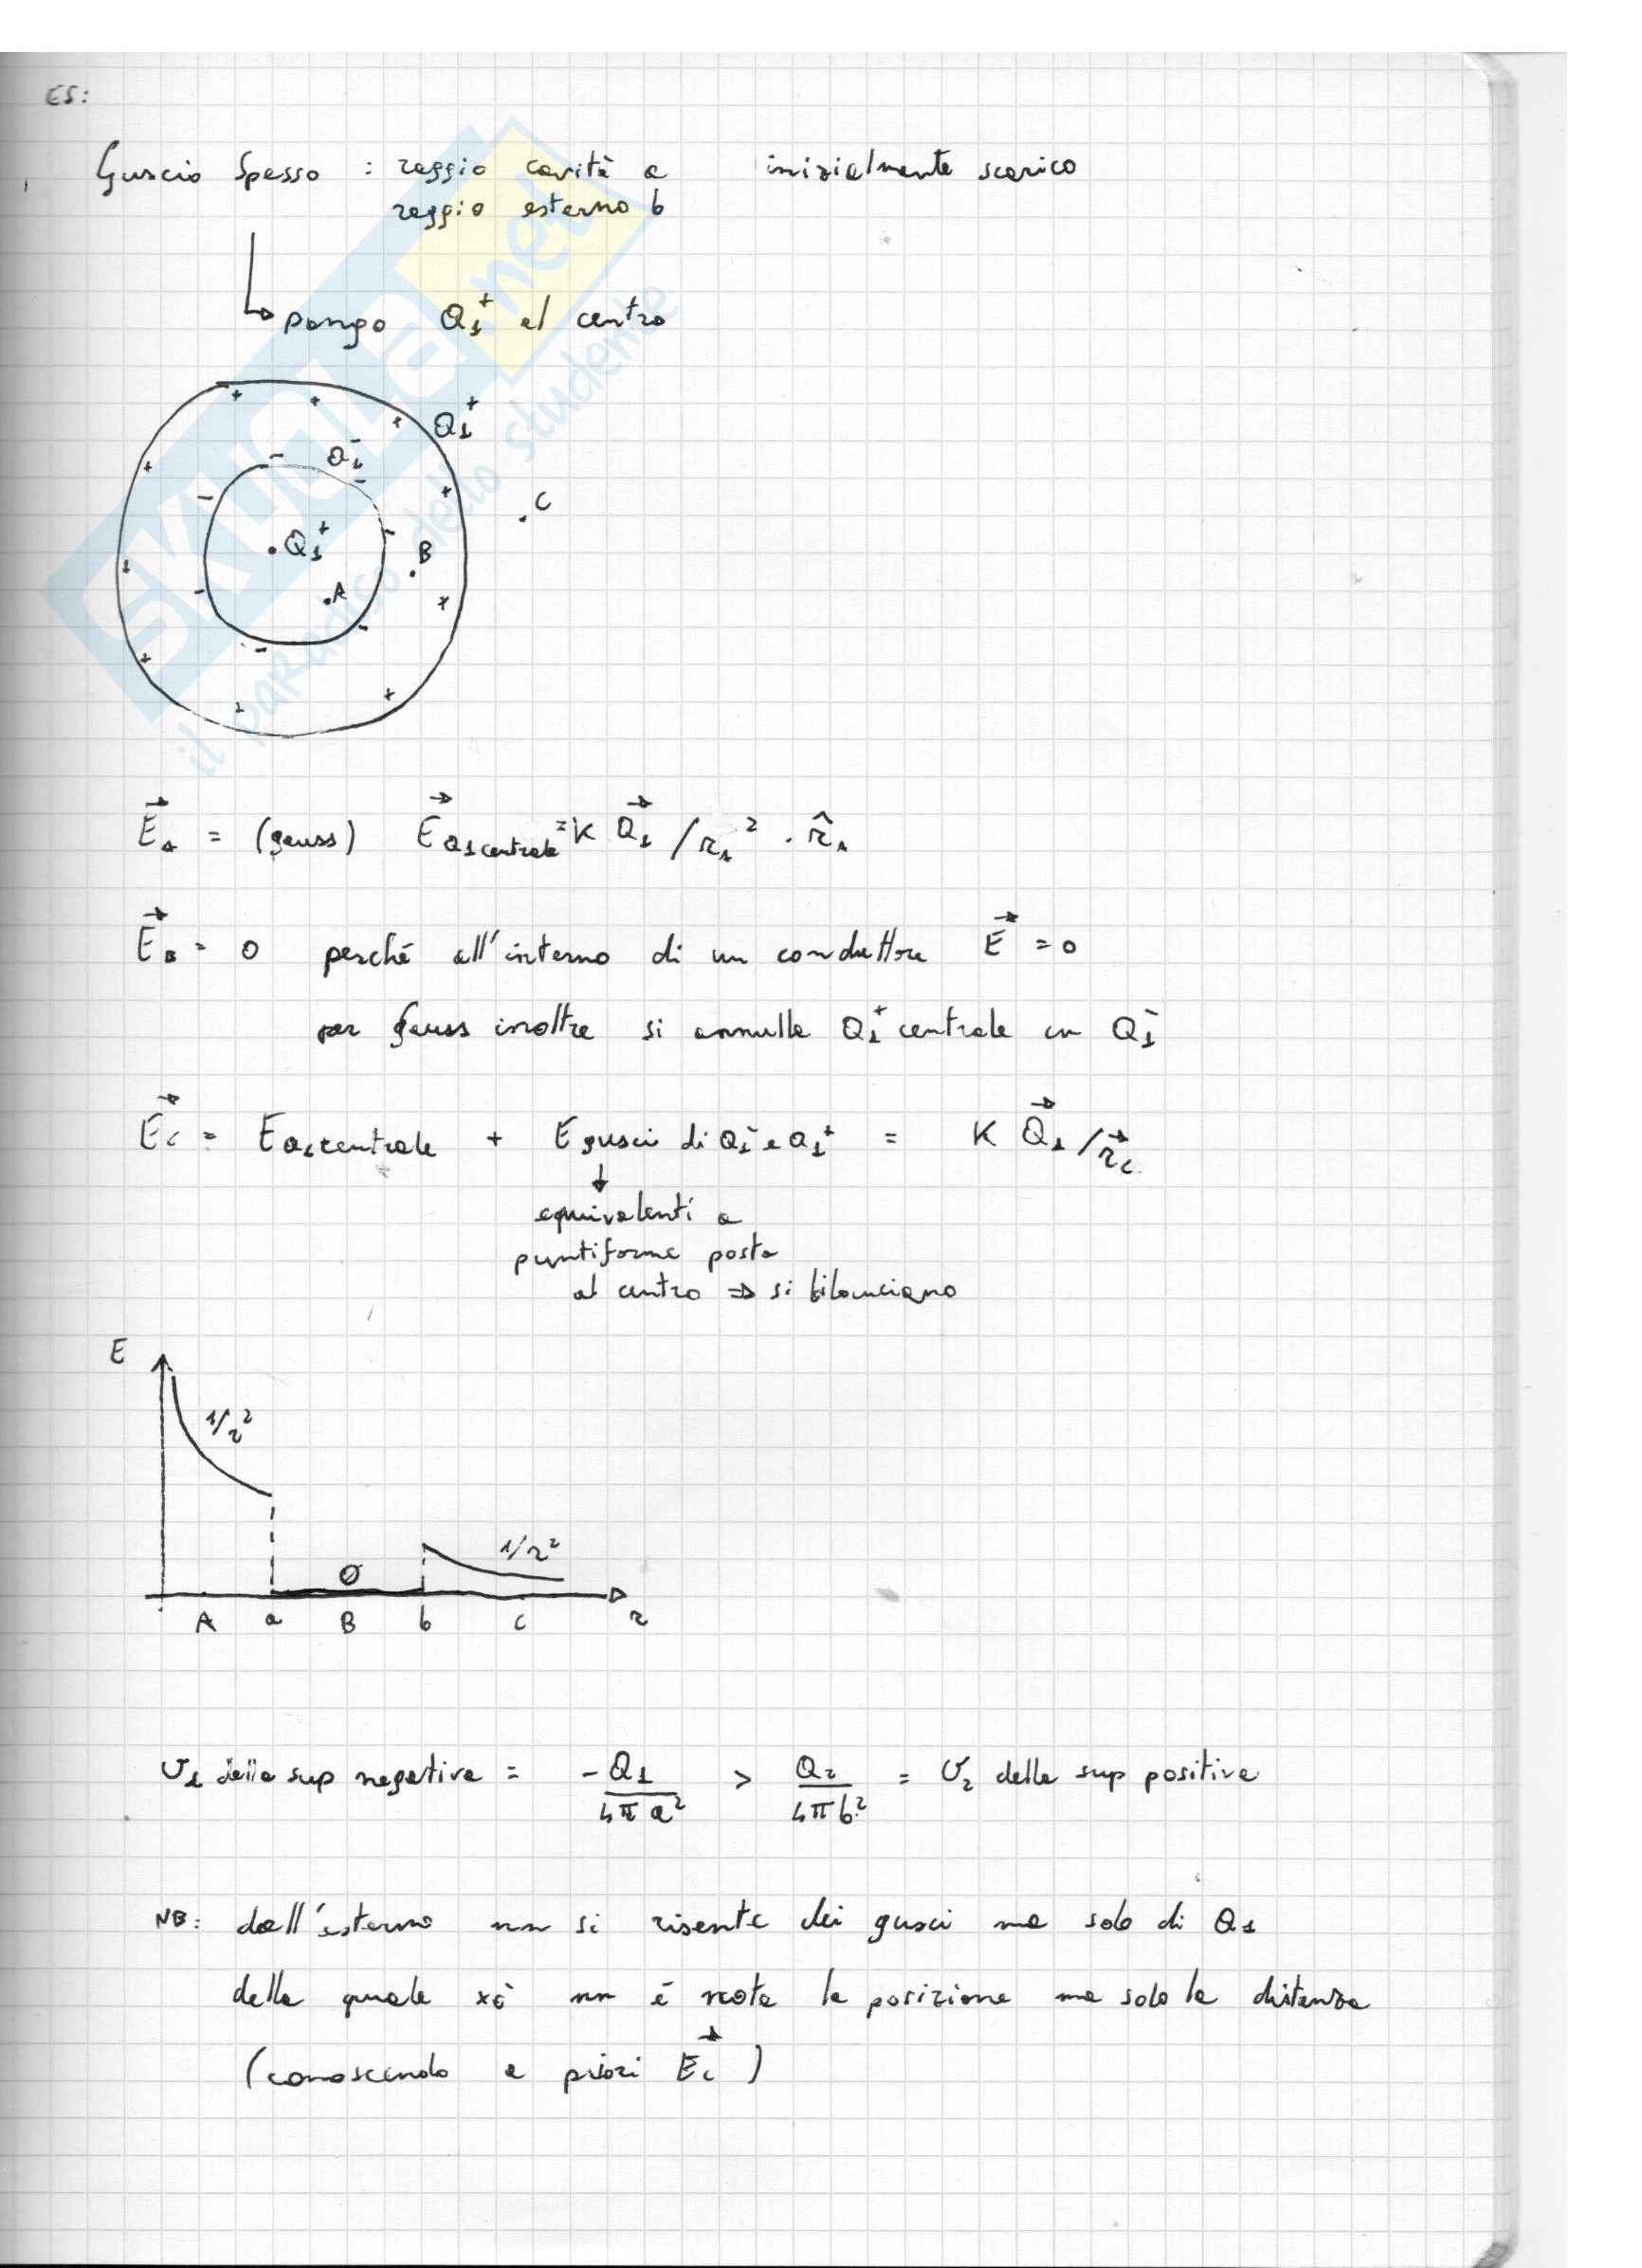 ES:
Guscio Spesso : raggio cavità a inizialmente scarico
raggio esterno b
pongo Q₁⁺ al centro
Q₁⁺
Q₁⁻
C
Q₁⁺
B
A
SKUOLA.net
il paradiso dello studente
E⃗_A = (gauss) E⃗_Q₁centrale = K Q⃗₁ / r_A² · r̂_A
E⃗_B = 0 perché all'interno di un conduttore E⃗ = 0
per Gauss inoltre si annulla Q₁⁺ centrale con Q₁⁻
E⃗_C = E_Q₁centrale + E gusci di Q₁⁻ e Q₁⁺ = K Q⃗₁ / r⃗_C
↓
equivalenti a
puntiforme posta
al centro ⇒ si bilanciano
E
1/r²
0
1/r²
A a B b C r
σ₁ della sup negativa = -Q₁/4πa² > Q₂/4πb² = σ₂ della sup positiva
NB: dall'esterno nn si risente dei gusci ma solo di Q₁
della quale xò nn è nota la posizione ma solo la distanza
(conoscendo a priori E⃗_C)